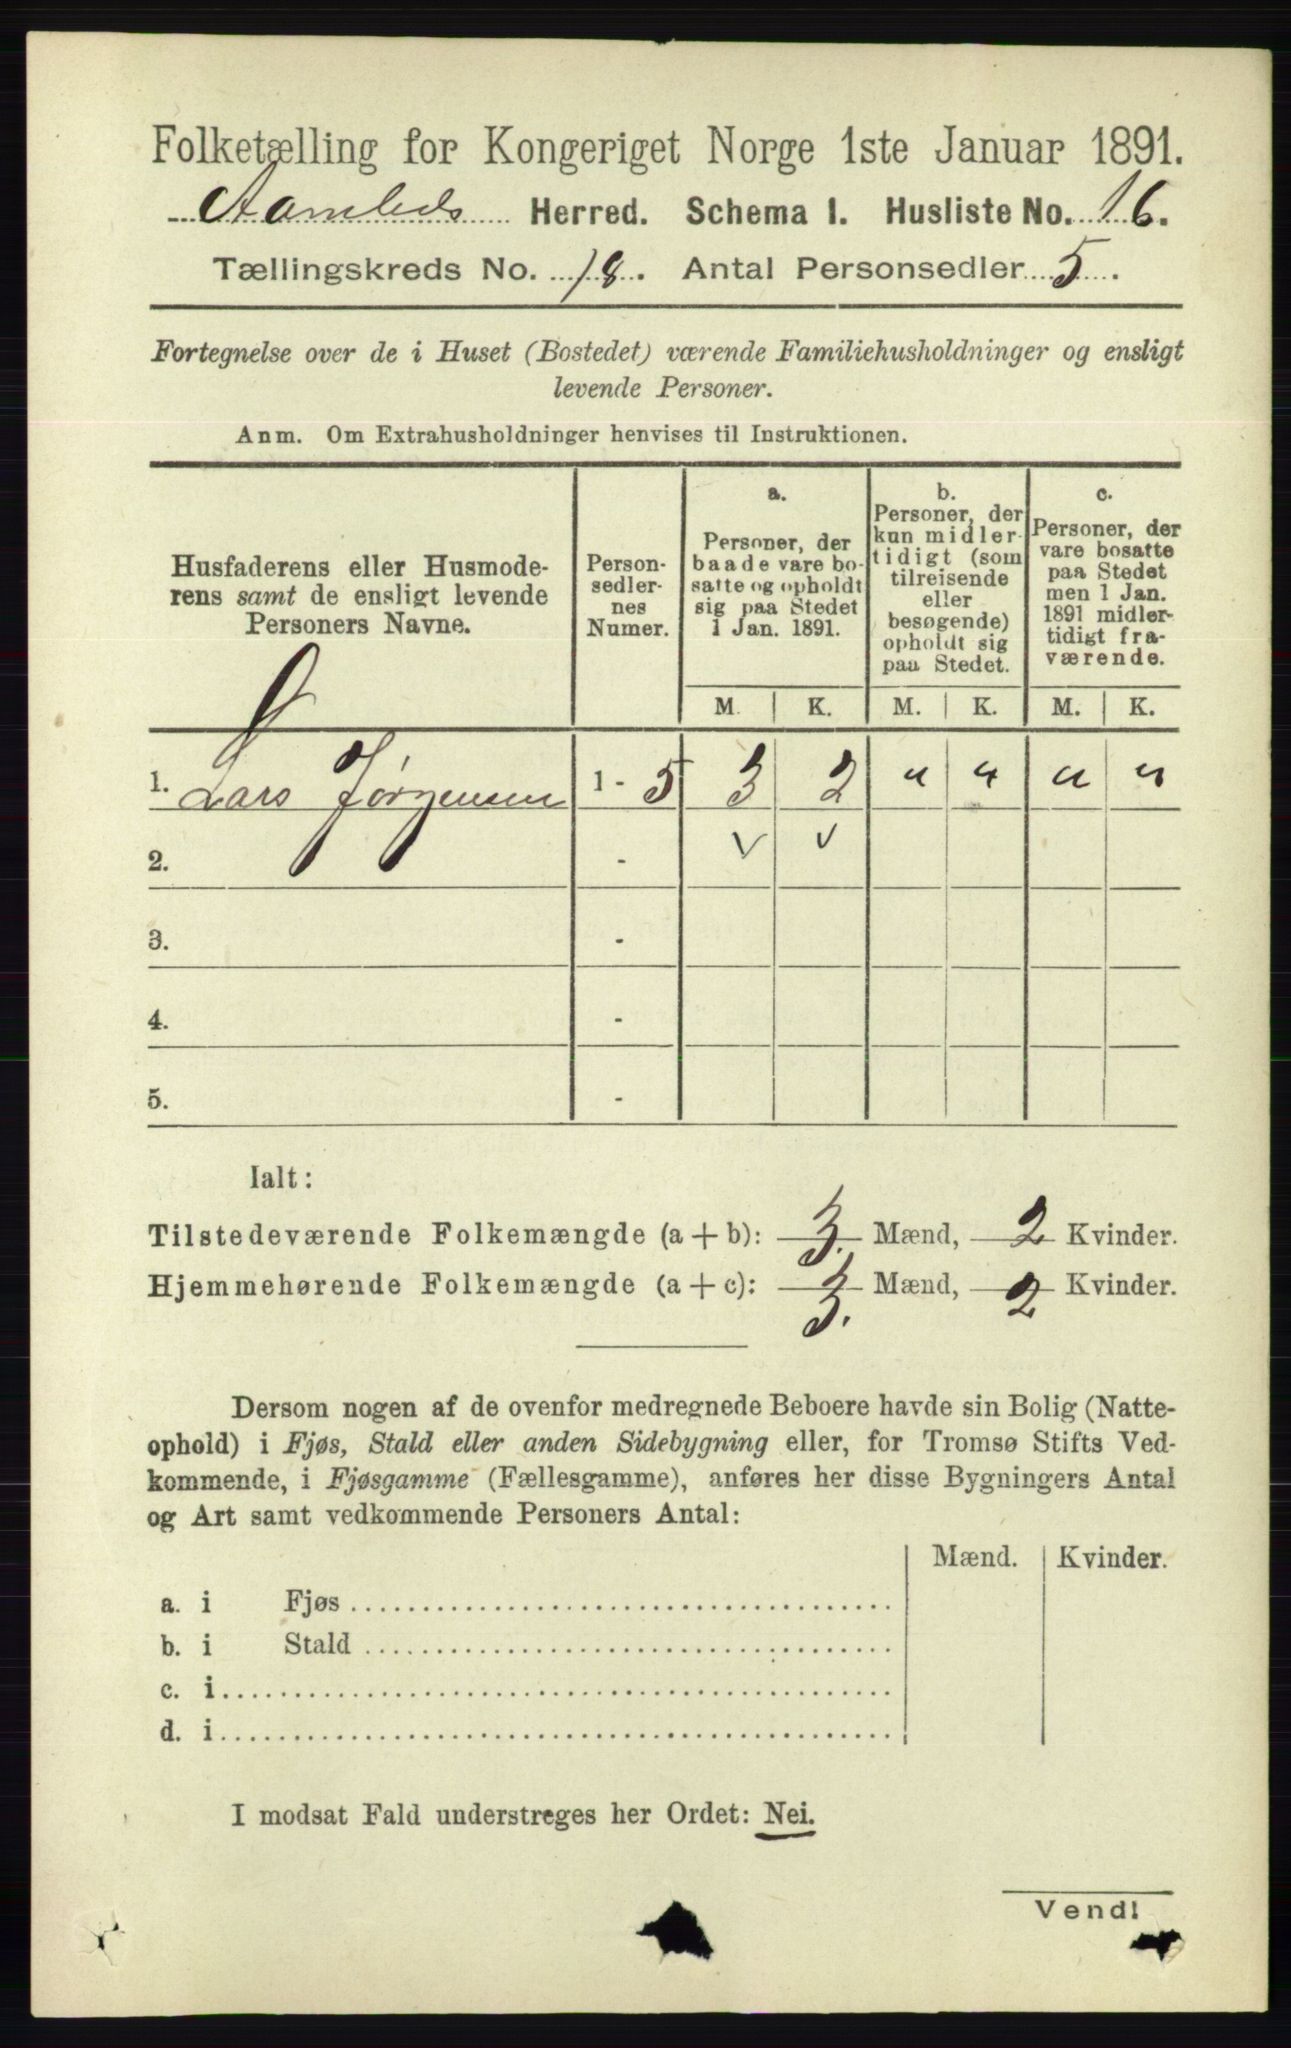 Folketælling for Kongeriget Norge 1ste Januar 1891.
Herred. Schema I. Husliste No. 16.
Tællingskreds No. 18. Antal Personsedler 5.
Fortegnelse over de i Huset (Bostedet) værende Familiehusholdninger og ensligt
levende Personer.
Anm. Om Extrahusholdninger henvises til Instruktionen.
Husfaderens eller Husmode-
rens samt de ensligt levende
Personers Navne.
Person-
sedler-
nes
Numer.
a.
Personer, der
baade vare bo-
satte og opholdt
sig paa Stedet
1 Jan. 1891.
b.
Personer, der
kun midler-
tidigt (som
tilreisende
eller
besøgende)
opholdt sig
paa Stedet.
c.
Personer, der
vare bosatte
paa Stedet
men 1 Jan.
1891 midler-
tidigt fra-
værende.
M. K. M. K. M. K.
1. Lars Jørgensen 1 - 5 3 2 " " " "
2. - v v
3. -
4. -
5. -
Ialt:
Tilstedeværende Folkemængde (a + b): 3. Mænd, 2 Kvinder.
Hjemmehørende Folkemængde (a + c): 3. Mænd, 2 Kvinder.
Dersom nogen af de ovenfor medregnede Beboere havde sin Bolig (Natte-
ophold) i Fjøs, Stald eller anden Sidebygning eller, for Tromsø Stifts Ved-
kommende, i Fjøsgamme (Fællesgamme), anføres her disse Bygningers Antal
og Art samt vedkommende Personers Antal:
Mænd. Kvinder.
a. i Fjøs
b. i Stald
c. i
d. i
I modsat Fald understreges her Ordet: Nei.
Vend!